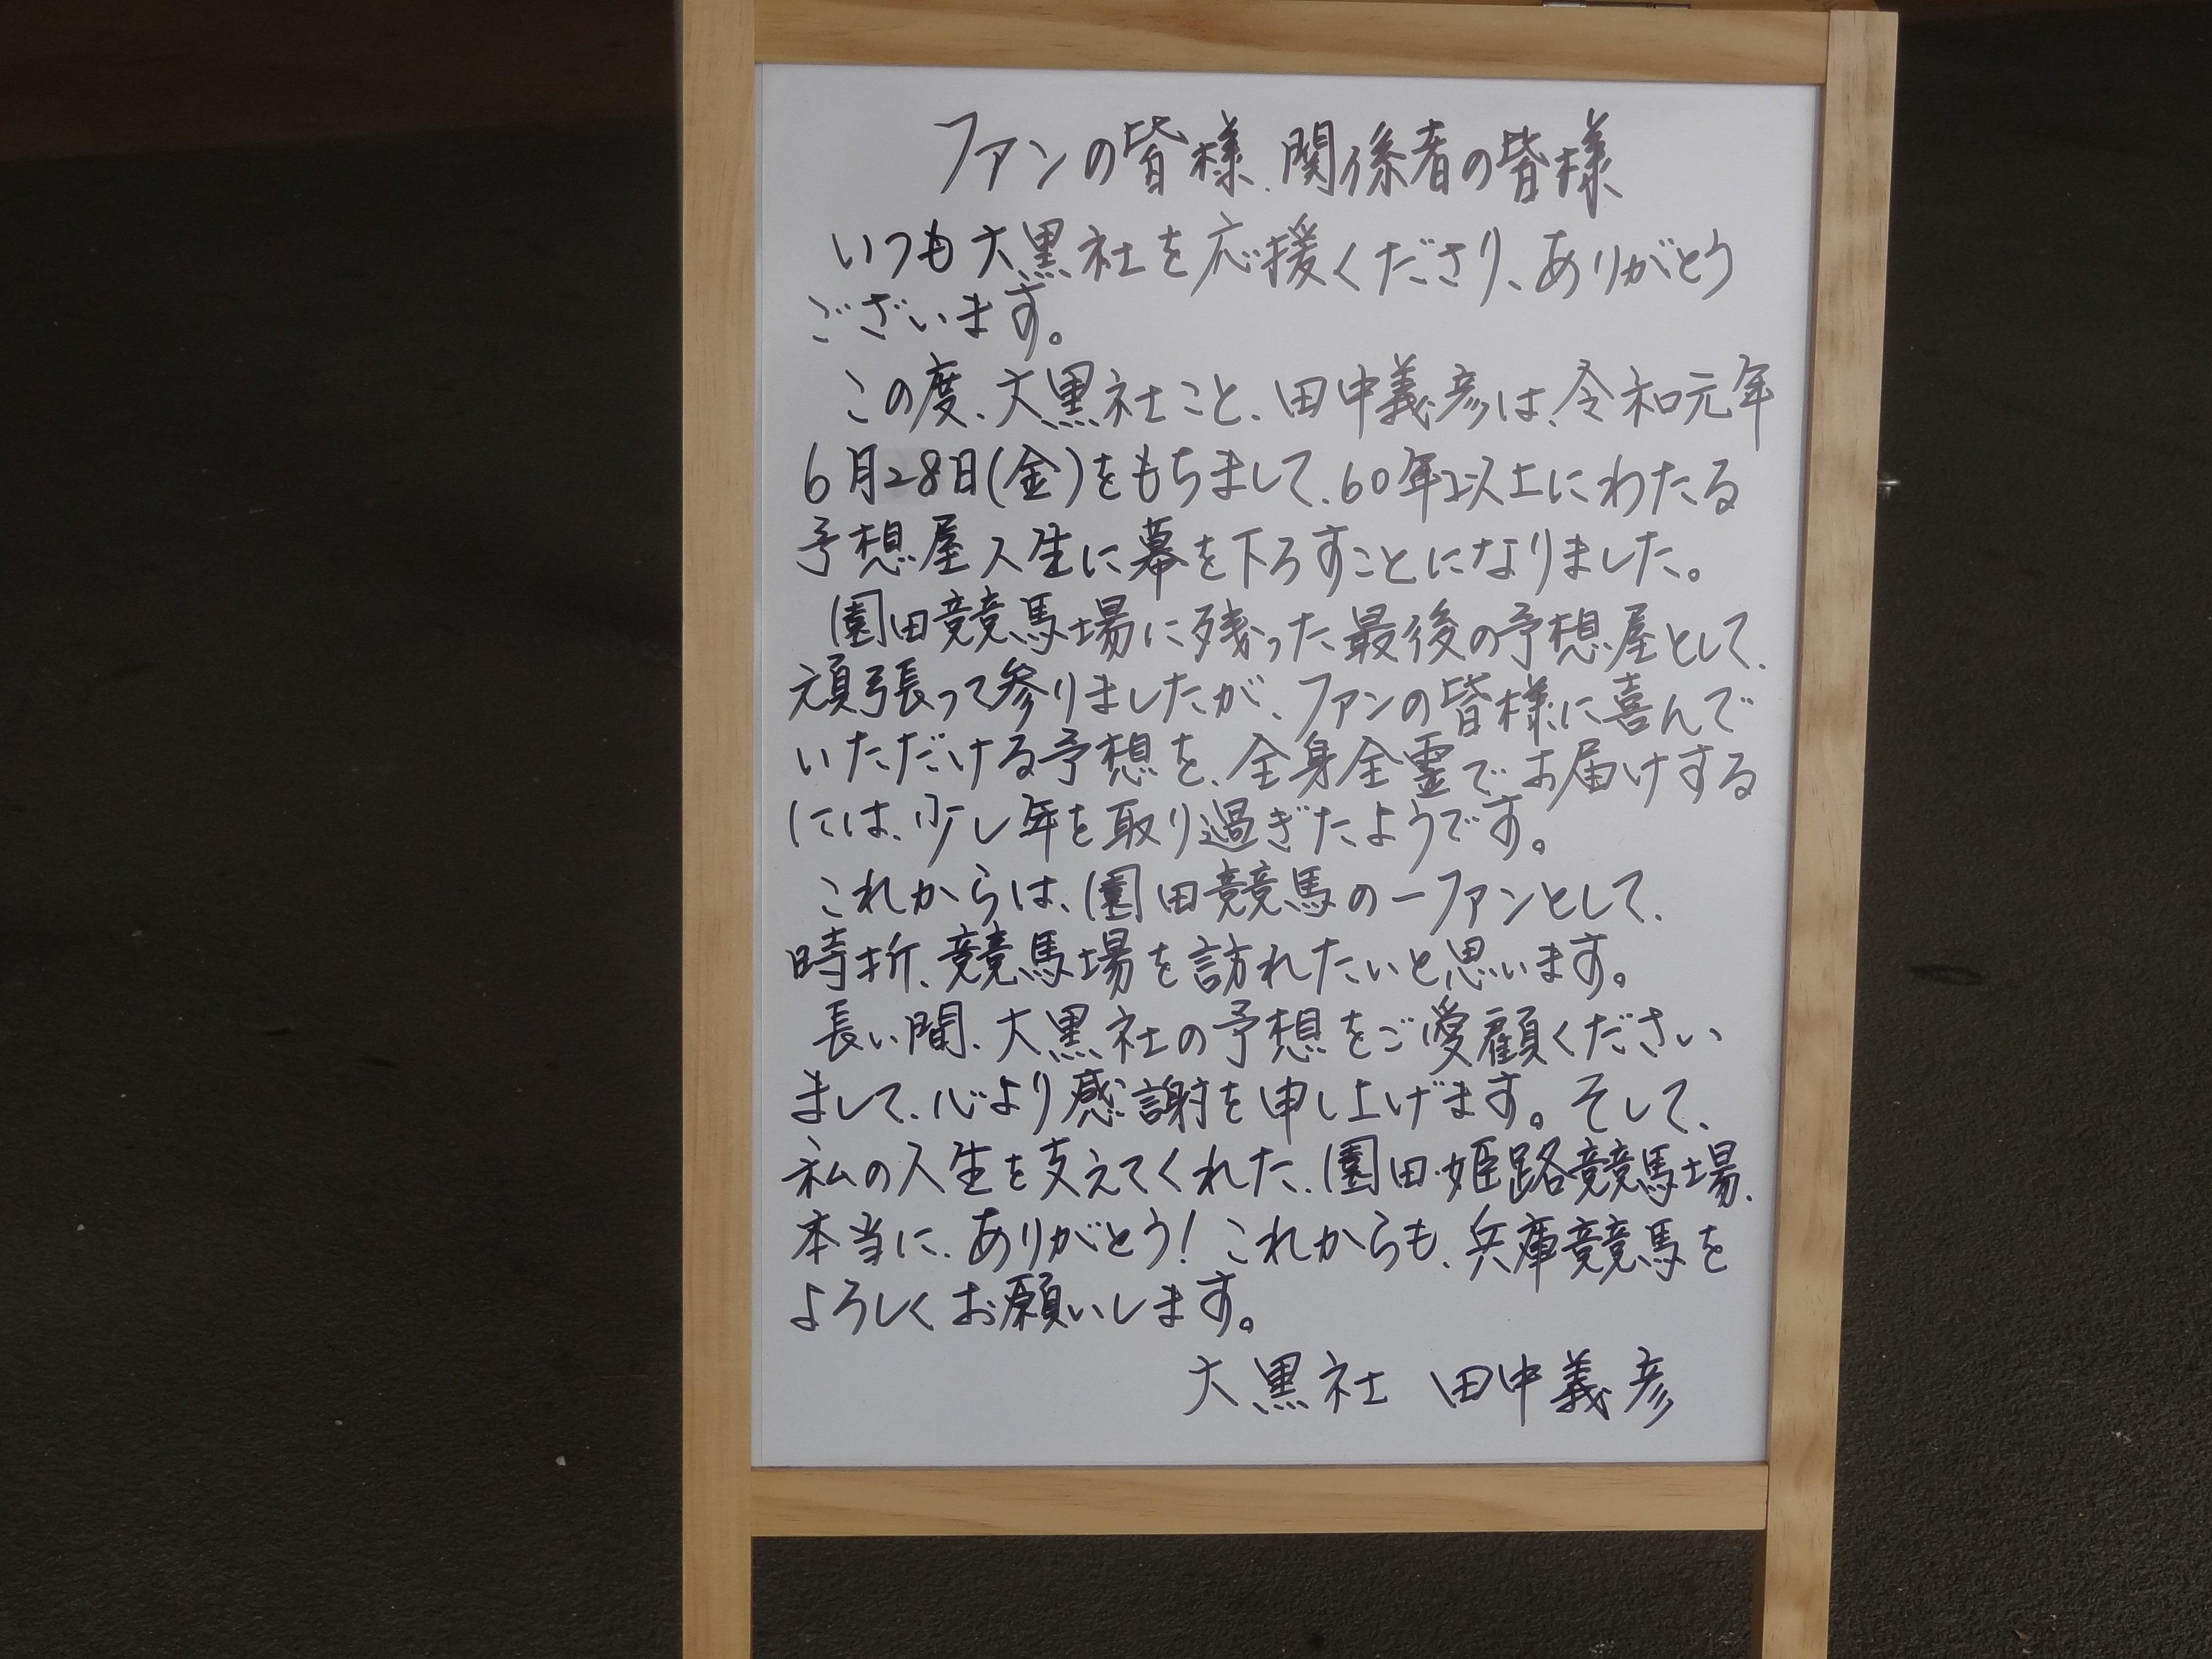 ファンの皆様、関係者の皆様
いつも大黒社を応援くださり、ありがとう
ございます。
この度、大黒社こと、田中義彦は、令和元年
6月28日(金)をもちまして、60年以上にわたる
予想屋人生に幕を下ろすことになりました。
園田競馬場に残った最後の予想屋として、
頑張って参りましたが、ファンの皆様に喜んで
いただける予想を、全身全霊でお届けする
には、少し年を取り過ぎたようです。
これからは、園田競馬の一ファンとして、
時折、競馬場を訪れたいと思います。
長い間、大黒社の予想をご愛顧ください
まして、心より感謝を申し上げます。そして、
私の人生を支えてくれた、園田・姫路競馬場、
本当に、ありがとう！これからも、兵庫競馬を
よろしくお願いします。
大黒社 田中義彦